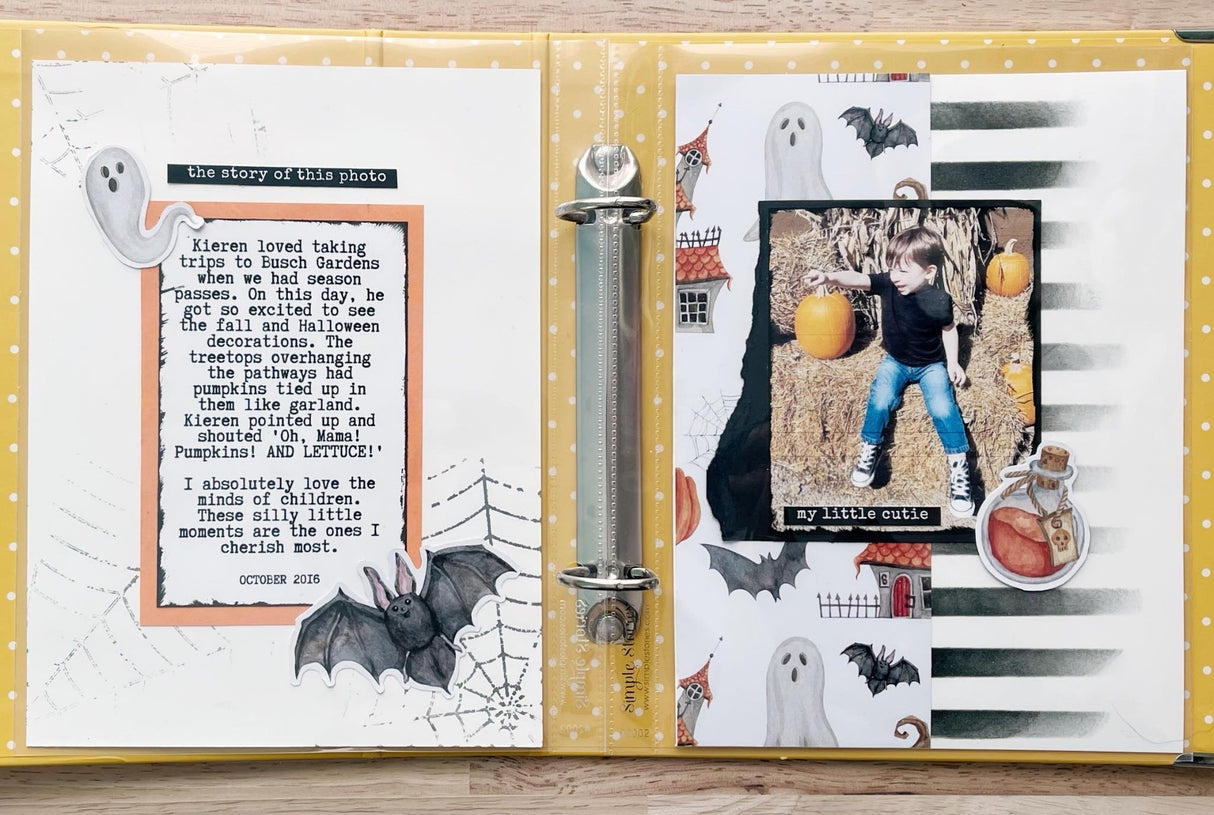 the story of this photo
Kieren loved taking
trips to Busch Gardens
when we had season
passes. On this day, he
got so excited to see
the fall and Halloween
decorations. The
treetops overhanging
the pathways had
pumpkins tied up in
them like garland.
Kieren pointed up and
shouted 'Oh, Mama!
Pumpkins! AND LETTUCE!'
I absolutely love the
minds of children.
These silly little
moments are the ones I
cherish most.
OCTOBER 2016
simple stories
www.simplestories.com
my little cutie